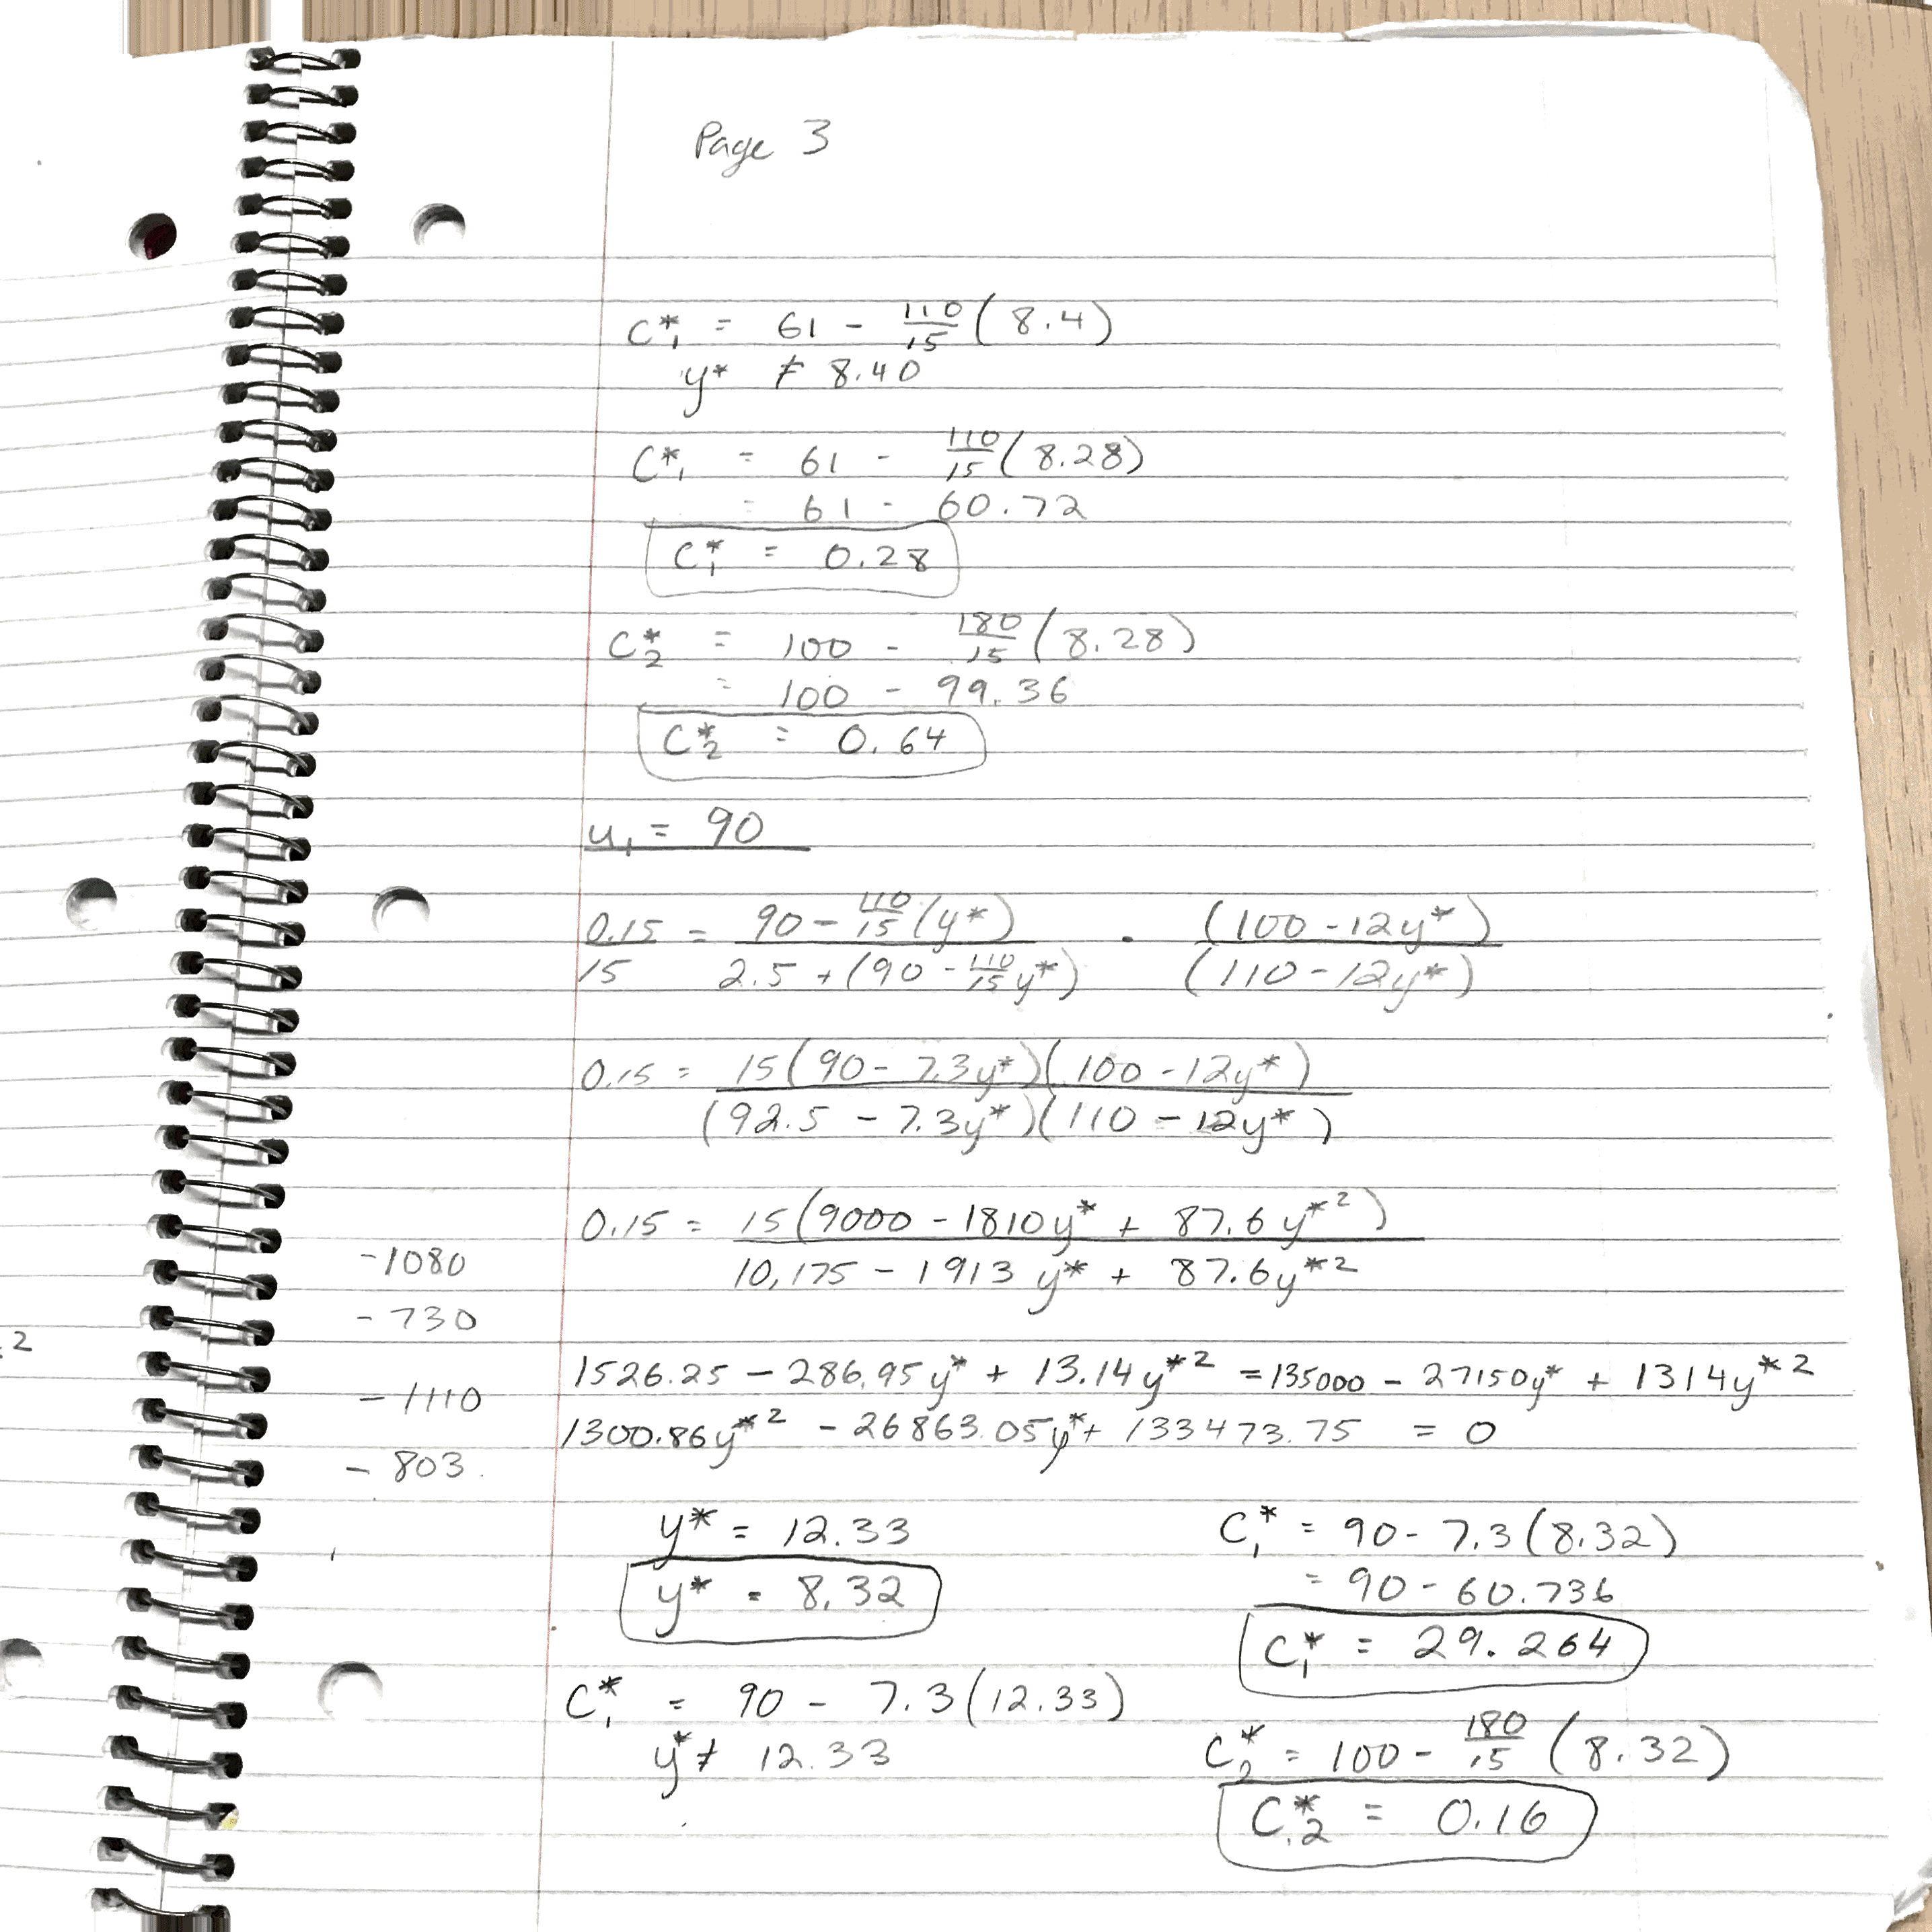 Page 3
C*₁ = 61 - 110/15 (8.4)
y* ≠ 8.40
C*₁ = 61 - 110/15 (8.28)
= 61 - 60.72
C*₁ = 0.28
C*₂ = 100 - 180/15 (8.28)
= 100 - 99.36
C*₂ = 0.64
u₁ = 90
0.15/15 = (90 - 110/15 (y*)) / (2.5 + (90 - 110/15 y*)) · (100 - 12y*) / (110 - 12y*)
0.15 = 15(90 - 7.3y*)(100 - 12y*) / (92.5 - 7.3y*)(110 - 12y*)
0.15 = 15(9000 - 1810y* + 87.6y*²) / 10,175 - 1913y* + 87.6y*²
-1080
-730
.2
-1110
-803
1526.25 - 286.95y* + 13.14y*² = 135000 - 27150y* + 1314y*²
1300.86y*² - 26863.05y* + 133473.75 = 0
y* = 12.33
y* = 8.32
C*₁ = 90 - 7.3(12.33)
y* ≠ 12.33
C₁* = 90 - 7.3(8.32)
= 90 - 60.736
C₁* = 29.264
C*₂ = 100 - 180/15 (8.32)
C*₂ = 0.16